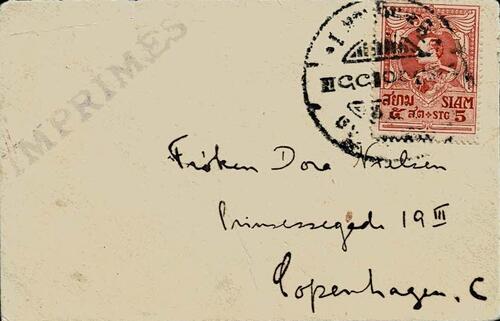 IMPRIMÉS
สยาม SIAM
๕ ส.ต. STG 5
Frøken Dora Nielsen
Prinsessegade 19 III
Copenhagen, C